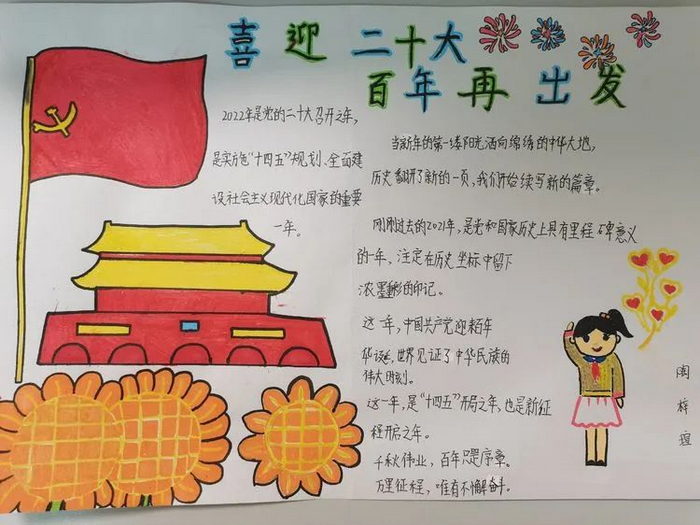 喜迎二十大
百年再出发
2022年是党的二十大召开之年,
是实施"十四五"规划、全面建
设社会主义现代化国家的重要
一年。
当新年的第一缕阳光洒向绵绣的中华大地,
历史翻开了新的一页,我们开始续写新的篇章。
刚刚过去的2021年,是党和国家历史上具有里程碑意义
的一年,注定在历史坐标中留下
浓墨重彩的印记。
这一年,中国共产党迎来百年
华诞,世界见证了中华民族的
伟大时刻。
这一年,是"十四五"开局之年,也是新征
程开启之年。
千秋伟业,百年只是序章。
万里征程,唯有不懈奋斗。
梓瑄